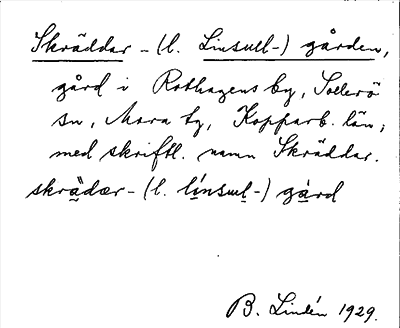 Skräddar - (l. Linsull-) gården,
gård i Rothagens by, Sollerö
sn, Mora tg, Kopparb. län;
med skriftl. namn Skräddar.
skrädær - (l. línsul -) gård
B. Lindén 1929.